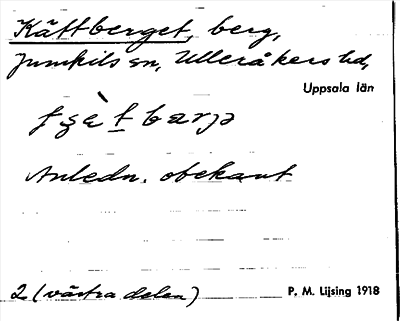 Kättberget, berg,
Jumkils sn, Ulleråkers hd,
Uppsala län
Anledn. obekant
2 (västra delen)
P. M. Lijsing 1918